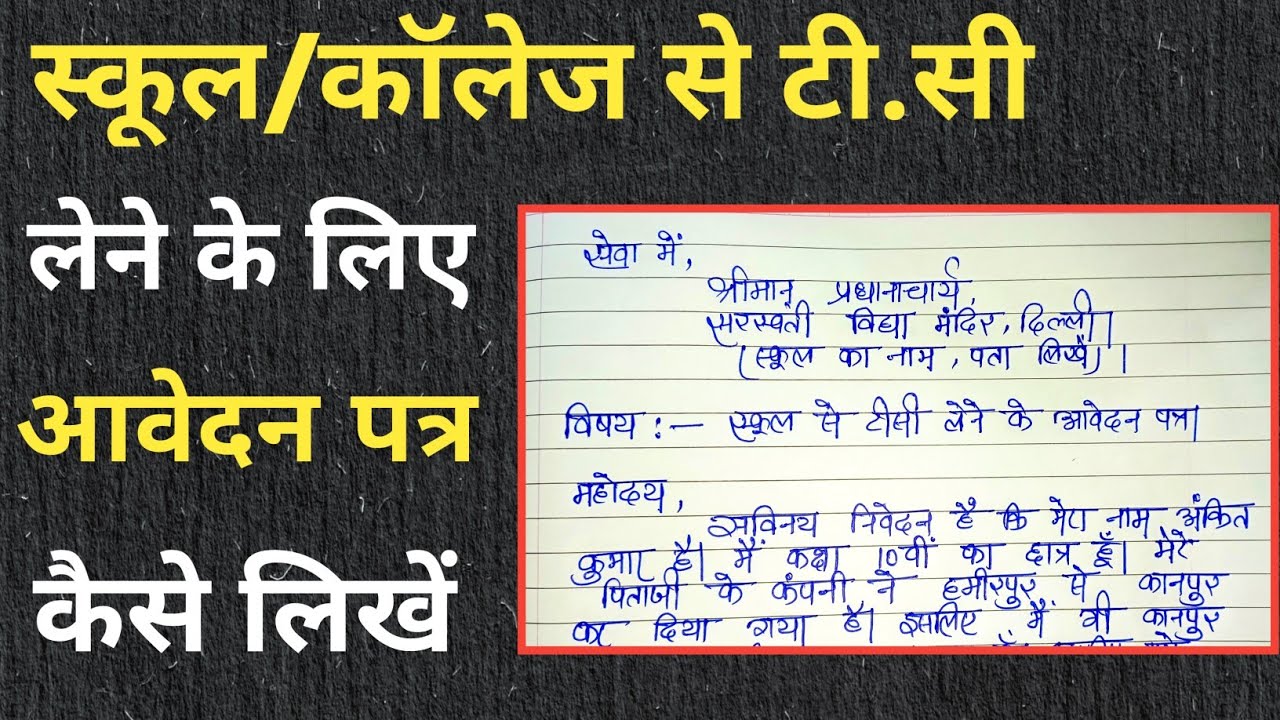 स्कूल/कॉलेज से टी.सी
लेने के लिए
आवेदन पत्र
कैसे लिखें
सेवा में,
श्रीमान् प्रधानाचार्य,
सरस्वती विद्या मंदिर, दिल्ली।
(स्कूल का नाम, पता लिखें)।
विषय :- स्कूल से टीसी लेने के आवेदन पत्र।
महोदय,
सविनय निवेदन है कि मेरा नाम अंकित
कुमार है। मैं कक्षा 10वीं का छात्र हूँ। मेरे
पिताजी के कंपनी ने हमीरपुर से कानपुर
कर दिया गया है। इसलिए मैं भी कानपुर